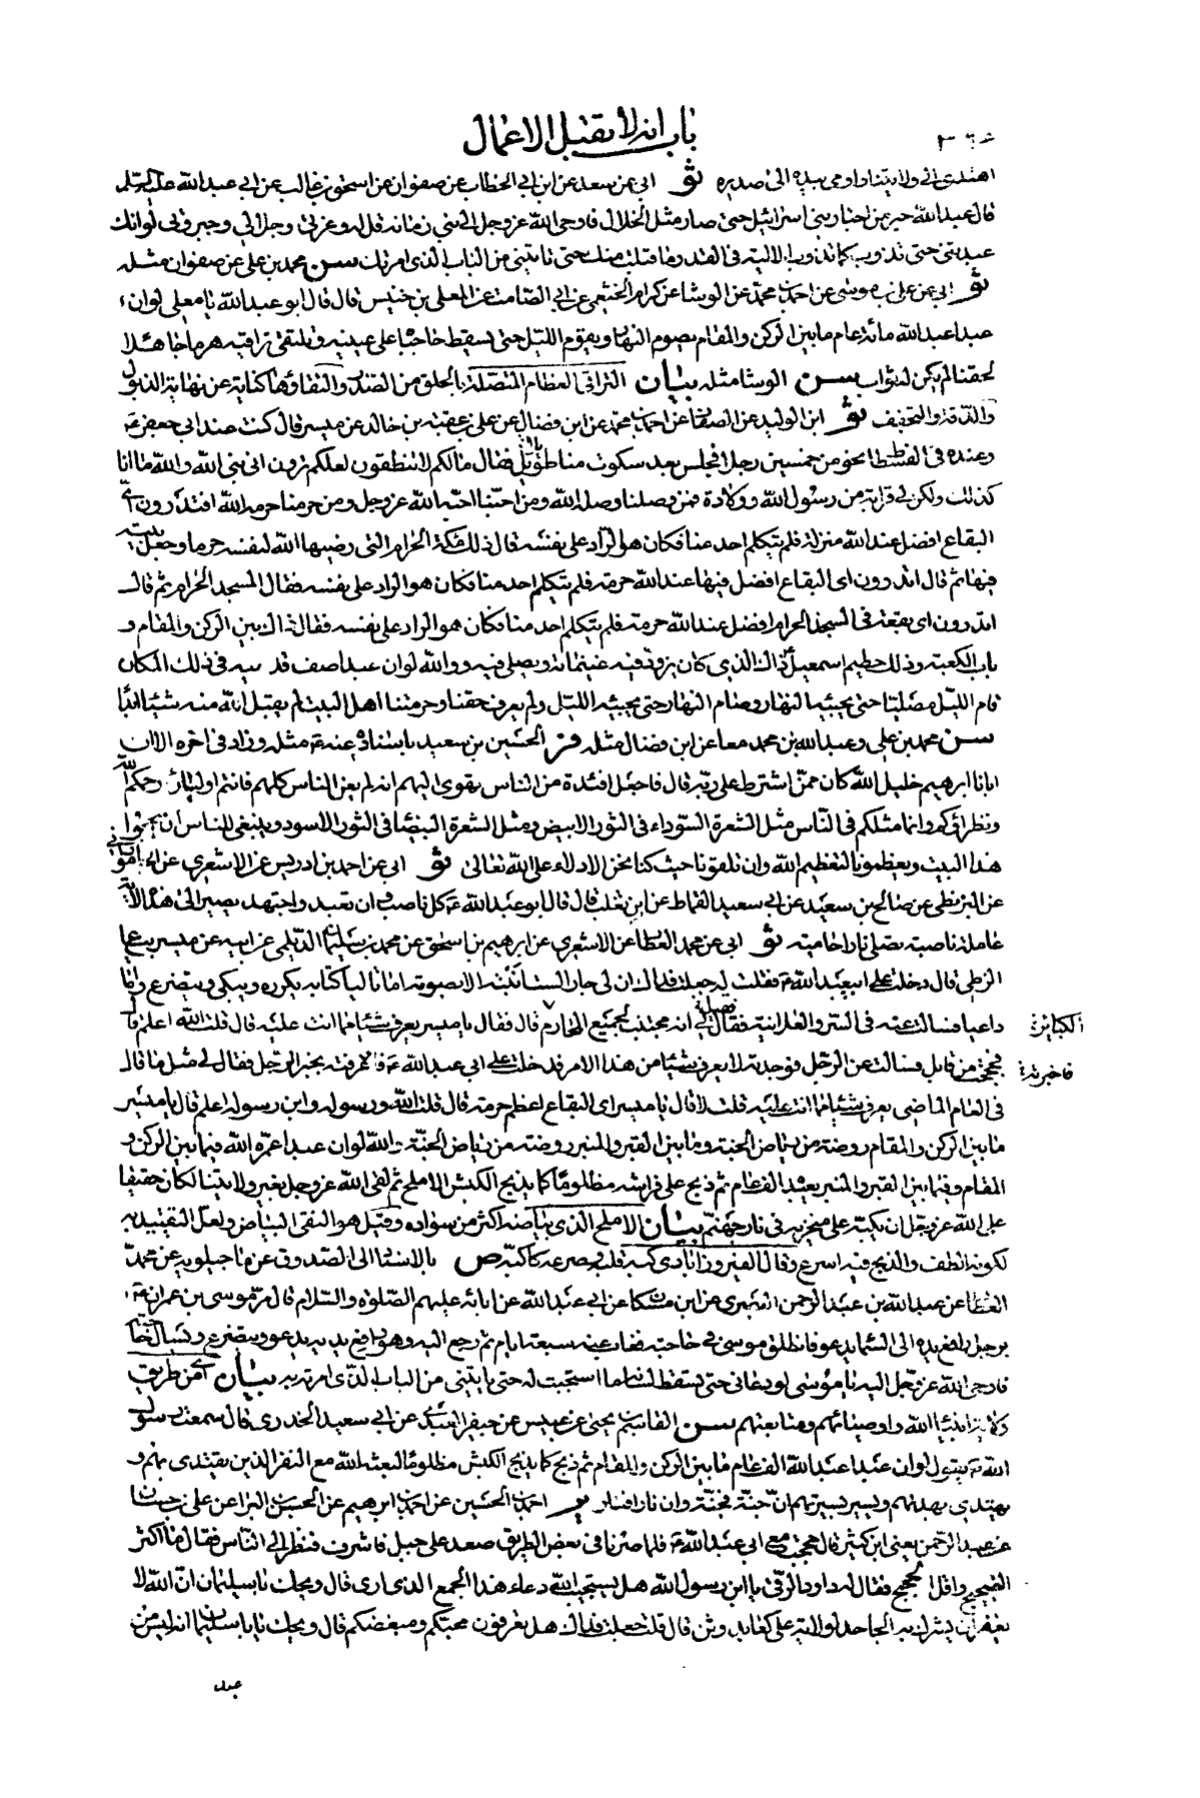 باب انه لا يقبل الاعمال
اهتدى الى ولايتنا واومى بيده الى صدره ثو ابي عن سعد عن ابن ابي الخطاب عن صفوان عن اسحق بن غالب عن ابي عبد الله عليه السلم
قال عبد الله حبر من احبار بني اسرائيل حتى صار مثل الخلال فاوحى الله عز وجل الى نبي زمانه قل له وعزتي وجلالي وجبروتي لو انك
عبدتني حتى تذوب كما تذوب الالية في القدر ما قبلت منك حتى تاتيني من الباب الذي امرتك سن محمد بن علي عن صفوان مثله
ثو ابي عن علي بن موسى عن احمد بن محمد عن الوشا عن كرام الخثعمي عن ابي الصامت عن المعلى بن خنيس قال قال ابو عبد الله يا معلى لو ان
عبدا عبد الله مائة عام ما بين الركن والمقام يصوم النهار ويقوم الليل حتى يسقط حاجباه على عينيه ويلتقي تراقيه هرما جاهلا
لحقنا لم يكن له ثواب سن الوشا مثله بيان التراقي العظام المتصلة بالحلق من الصدر والتقاؤها كناية عن نهاية الذبول
والدقة والتجفيف ثو ابن الوليد عن الصفار عن احمد بن محمد عن ابن فضال عن علي بن عقبة بن خالد عن ميسر قال كنت عند ابي جعفر ع
وعنده في الفسطاط نحو من خمسين رجلا فجلس بعد سكوت منا طويل فقال ما لكم لا تنطقون لعلكم ترون اني نبي الله والله ما انا
كذلك ولكن لي قرابة من رسول الله وولادة فمن وصلنا وصله الله ومن احبنا احبه الله عز وجل ومن حرمنا حرمه الله افتدرون اي
البقاع افضل عند الله منزلة فلم يتكلم احد منا فكان هو الراد على نفسه قال ذلك مكة الحرام التي رضيها الله لنفسه حرما وجعل بيته
فيها ثم قال اتدرون اى البقاع افضل فيها عند الله حرمة فلم يتكلم احد منا فكان هو الراد على نفسه فقال المسجد الحرام ثم قال
اتدرون اى بقعة في المسجد الحرام افضل عند الله حرمة فلم يتكلم احد منا فكان هو الراد على نفسه فقال ذاك بين الركن والمقام و
باب الكعبة وذلك حطيم اسمعيل ذاك الذي كان يزود فيه غنيماته ويصلي فيه ووالله لو ان عبدا صف قدميه في ذلك المكان
قام الليل مصليا حتى يجيئه النهار وصام النهار حتى يجيئه الليل ولم يعرف حقنا وحرمتنا اهل البيت لم يقبل الله منه شيئا ابدا
سن محمد بن علي وعبد الله بن محمد معا عن ابن فضال مثله فر الحسين بن سعيد باسناده عنه ع مثله وزاد في اخره الا ان
ابانا ابرهيم خليل الله كان ممن اشترط على ربه قال فاجعل افئدة من الناس تهوى اليهم انه لم يعن الناس كلهم فانتم اولئك رحمكم الله
ونظراؤكم وانما مثلكم في الناس مثل الشعرة السوداء في الثور الابيض ومثل الشعرة البيضاء في الثور الاسود وينبغي للناس ان يحجوا
هذا البيت ويعظموه لتعظيم الله وان يلقونا حيث كنا نحن الادلاء على الله تعالى ثو ابي عن احمد بن ادريس عن الاشعري عن
عن البزنطي عن صالح بن سعيد عن ابي سعيد القماط عن ابن تغلب قال قال ابو عبد الله ع كل ناصب وان تعبد واجتهد يصير الى هذه الاية
عاملة ناصبة تصلى نارا حامية ثو ابي عن محمد العطار عن الاشعري عن ابرهيم بن اسحق عن محمد بن سليمان الديلمي عن ابيه عن ميسر بياع
الزطي قال دخلت على ابي عبد الله ع فقلت له جعلت فداك ان لي جارا لست انتبه الا بصوته اما تاليا كتابه يكرره ويبكي ويتضرع واما
داعيا فسالت عنه في السر والعلانية فقيل لي انه مجتنب لجميع المحارم قال فقال يا ميسر يعرف شيئا مما انت عليه قال قلت الله اعلم قال
فحججت من قابل فسالت عن الرجل فوجدته لا يعرف شيئا من هذا الامر فدخلت على ابي عبد الله ع فاخبرته بخبر الرجل فقال لي مثل ما قال
في العام الماضي يعرف شيئا مما انت عليه قلت لا قال يا ميسر اى البقاع اعظم حرمة قال قلت الله ورسوله وابن رسوله اعلم قال يا ميسر
ما بين الركن والمقام روضة من رياض الجنة وما بين القبر والمنبر روضة من رياض الجنة والله لو ان عبدا عمره الله فيما بين الركن و
المقام وفيما بين القبر والمنبر يعبده الف عام ثم ذبح على فراشه مظلوما كما يذبح الكبش الاملح ثم لقى الله عز وجل بغير ولايتنا لكان حقيقا
على الله عز وجل ان يكبه على منخريه في نار جهنم بيان الاملح الذي بياضه اكثر من سواده وقيل هو النقى البياض ولعل التقييد به
لكونه الطف والذبح فيه اسرع وقال الفيروزابادي كبه قلبه وصرعه كاكبه ص بالاسناد الى الصدوق عن ماجيلويه عن محمد
العطار عن عبد الله بن عبد الرحمن البصري عن ابن مسكان عن ابي عبد الله عن ابائه عليهم الصلوة والسلام قال مر موسى بن عمران ع
برجل رافع يده الى السماء يدعو فانطلق موسى في حاجته فغاب عنه سبعة ايام ثم رجع اليه وهو رافع يديه يدعو ويتضرع ويسال حاجته
فاوحى الله عز وجل اليه يا موسى لو دعاني حتى يسقط لسانه ما استجبت له حتى ياتيني من الباب الذي امرته به بيان اي من طريق
ولاية انبياء الله واوصيائهم ومتابعتهم سن القاسم بن يحيى عن عبيس عن جيفر العبدي عن ابي سعيد الخدري قال سمعت رسول
الله ص يقول لو ان عبدا عبد الله الف عام ما بين الركن والمقام ثم ذبح كما يذبح الكبش مظلوما لبعثه الله مع النفر الذين يقتدى بهم و
يهتدى بهداهم ويسير بسيرتهم ان جنة فجنة وان نارا فنار ير احمد بن الحسين عن احمد بن ابرهيم عن الحسن بن البرا عن علي بن حسان
عن عبد الرحمن يعني ابن كثير قال حججت مع ابي عبد الله ع فلما صرنا في بعض الطريق صعد على جبل فاشرف فنظر الى الناس فقال ما اكثر
الضجيج واقل الحجيج فقال له داود الرقي يا ابن رسول الله هل يستجيب الله دعاء هذا الجمع الذي ارى قال ويحك يا با سليمان ان الله لا
يغفر ان يشرك به الجاحد لولاية علي كعابد وثن قال قلت جعلت فداك هل تعرفون محبكم ومبغضكم قال ويحك يا با سليمان انه ليس من
الكبائر
فاخبرته
عبد